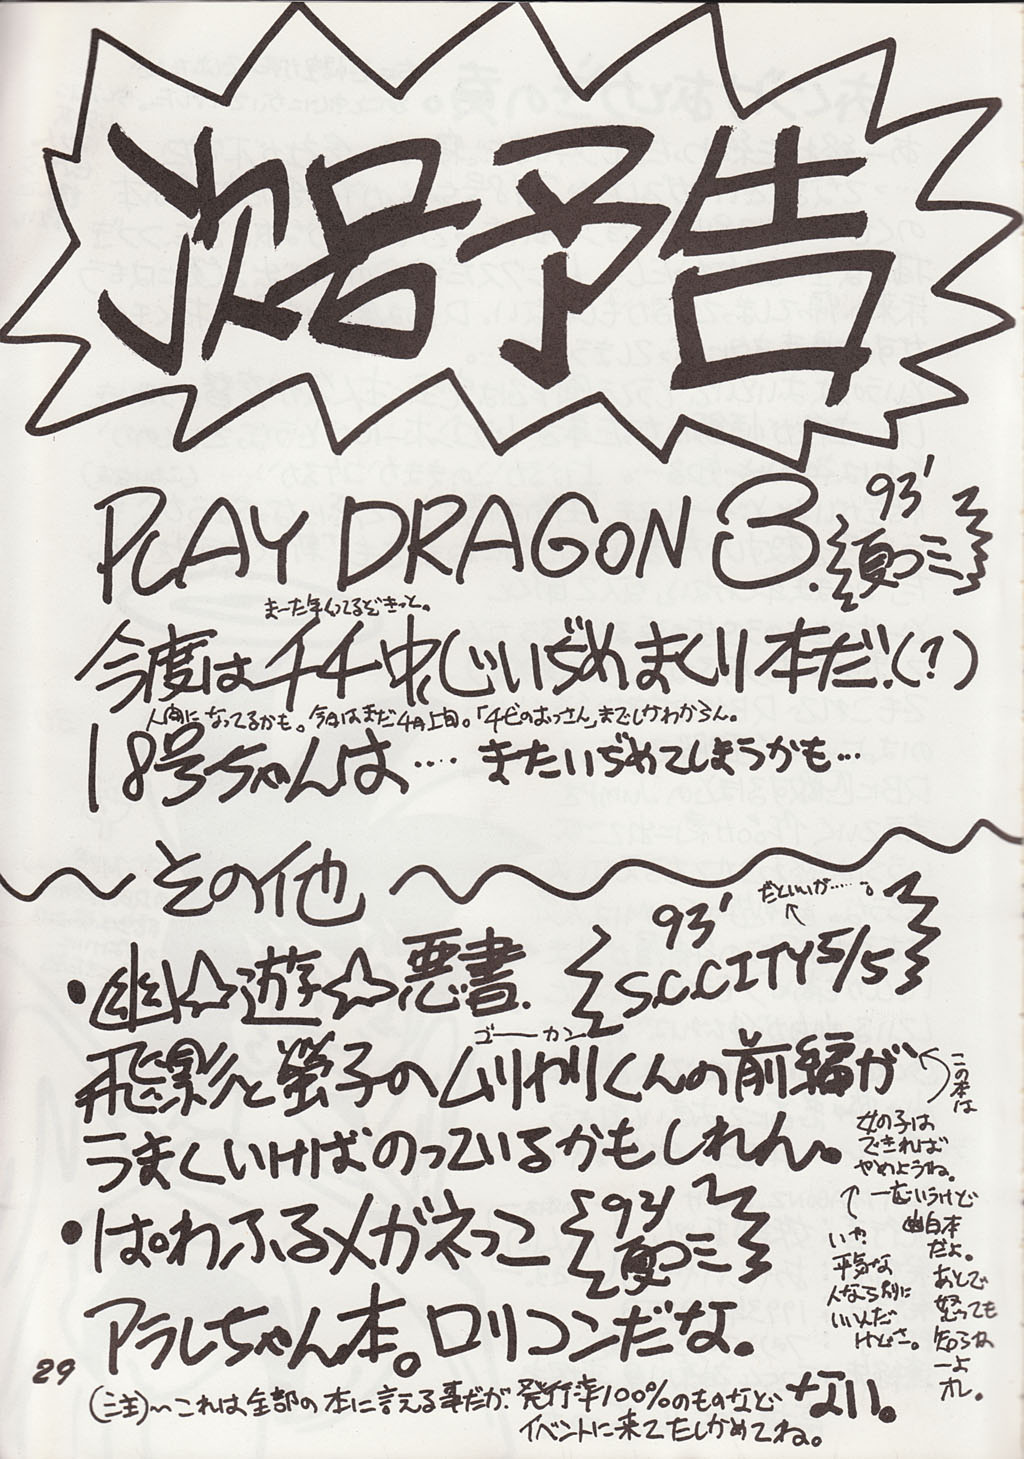 次号予告
PLAY DRAGON 3. 93' 夏コミ
まーた年くってるぞきっと。
今度はチチ中心じいぢめまくり本だ!(?)
人間になってるかも。今日はまだ4月上旬。「4代のおっさん」までしかわからん。
18号ちゃんは‥‥またいぢめてしまうかも…
その他
だといいが……。
・幽☆遊☆悪書. 93' S.C.CITY 5/5
ゴーカン
飛影と螢子のムリヤリくんの前編が
うまくいけばのっているかもしれん。
この本は
女の子は
できれば
やめようね。
一応いうけど
幽白本
だよ。
あとで
怒っても
知らね
ーよ
オレ。
いや
平気な
人なら別に
いいんだ
けどさ。
・ぱわふるメガネっこ 93' 夏コミ
アラレちゃん本。ロリコンだな。
29
(注)〜これは全部の本に言える事だが、発行率100%のものなどない。
イベントに来てたしかめてね。